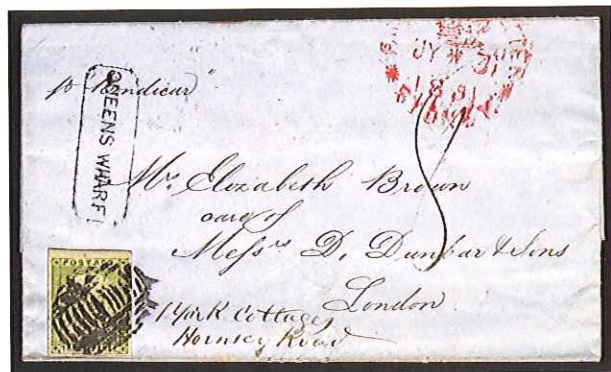 QUEENS WHARF
JY * 31
1851
SYDNEY
Elizabeth Brown
care of
Messrs D. Dunbar & Sons
London
York Cottage
Hornsey Road
POSTAGE